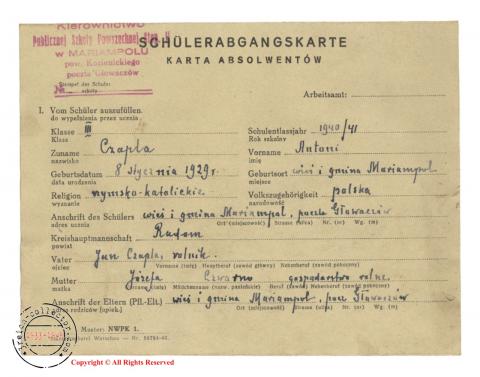 Kierownictwo
Publicznej Szkoły Powszechnej Stop. II
w MARIAMPOLU
pow. Kozienickiego
poczta Głowaczów
Stempel der Schule:
szkoły
SCHÜLERABGANGSKARTE
KARTA ABSOLWENTÓW
№
Arbeitsamt:
I. Vom Schüler auszufüllen.
do wypełnienia przez ucznia
Klasse III
Klasa
Schulentlassjahr 1940/41
Rok szkolny
Zuname Czapla
nazwisko
Vorname Antoni
imię
Geburtsdatum 8 stycznia 1929 r.
data urodzenia
Geburtsort wieś i gmina Mariampol
miejsce
Religion rzymsko-katolickie
wyznanie
Volkszugehörigkeit polska
narodowość
Anschrift des Schülers wieś i gmina Mariampol, pocz. Głowaczów
adres ucznia Ort (miejscowość) Strasse (ulica) Nr. (nr) Wg. (m)
Kreishauptmannschaft Radom
powiat
Vater Jan Czapla, rolnik.
ojciec Vorname (imię) Hauptberuf (zawód główny) Nebenberuf (zawód poboczny)
Mutter Józefa Czwarno gospodarstwo rolne.
matka Vorname (imię) Mädchenname (nazw. panieńskie) Beruf (zawód) Nebenberuf (zawód poboczny)
Anschrift der Eltern (Pfl.-Elt.) wieś i gmina Mariampol, pocz. Głowaczów
adres rodziców (opiek.) Ort (miejscowość) Strasse (ulica) Nr. (nr) Wg. (m)
Muster: NWPK 1.
Warschau — Nr.
Copyright © All Rights Reserved